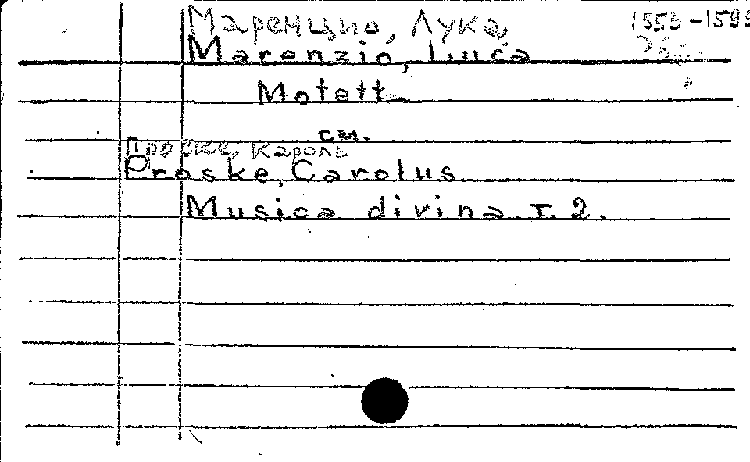 Маренцио, Лука, 1553-1599
Marenzio, Luca
Motett
см.
Проске, Кароль
Proske, Carolus
Musica divina T. 2.